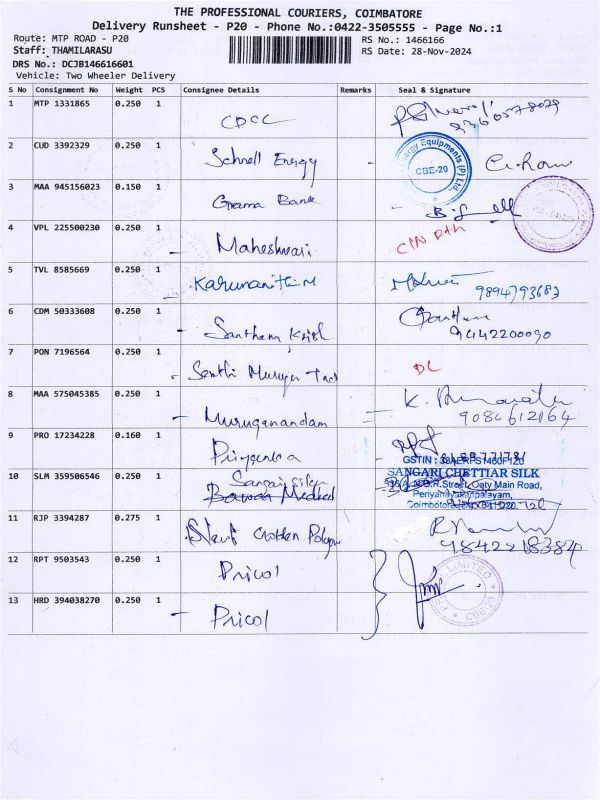 THE PROFESSIONAL COURIERS, COIMBATORE
Delivery Runsheet - P20 - Phone No.:0422-3505555 - Page No.:1
Route: MTP ROAD - P20
Staff: THAMILARASU
RS No.: 1466166
RS Date: 28-Nov-2024
DRS No.: DCJB146616601
Vehicle: Two Wheeler Delivery
S No Consignment No Weight PCS Consignee Details Remarks Seal & Signature
1 MTP 1331865 0.250 1 CPCC
2 CUD 3392329 0.250 1 Schnell Energy
Energy Equipments (P) Ltd.,
CBE-20
3 MAA 945156023 0.150 1 Bank
4 VPL 225500230 0.250 1 Maheshwari
5 TVL 8585669 0.250 1 Karunanithi.M
9894793683
6 CDM 50333608 0.250 1 Santham
9442200090
7 PON 7196564 0.250 1 Senthi Murugan DL
8 MAA 575045385 0.250 1 Muruganandam K.
9080612164
9 PRO 17234228 0.160 1 Priyanka
10 SLM 359506546 0.250 1
GSTIN :
SANGARI CHETTIAR SILK
Ooty Main Road,
11 RJP 3394287 0.275 1 Golden
12 RPT 9503543 0.250 1 Pricol
13 HRD 394038270 0.250 1 Pricol
LIMITED
CBE-20